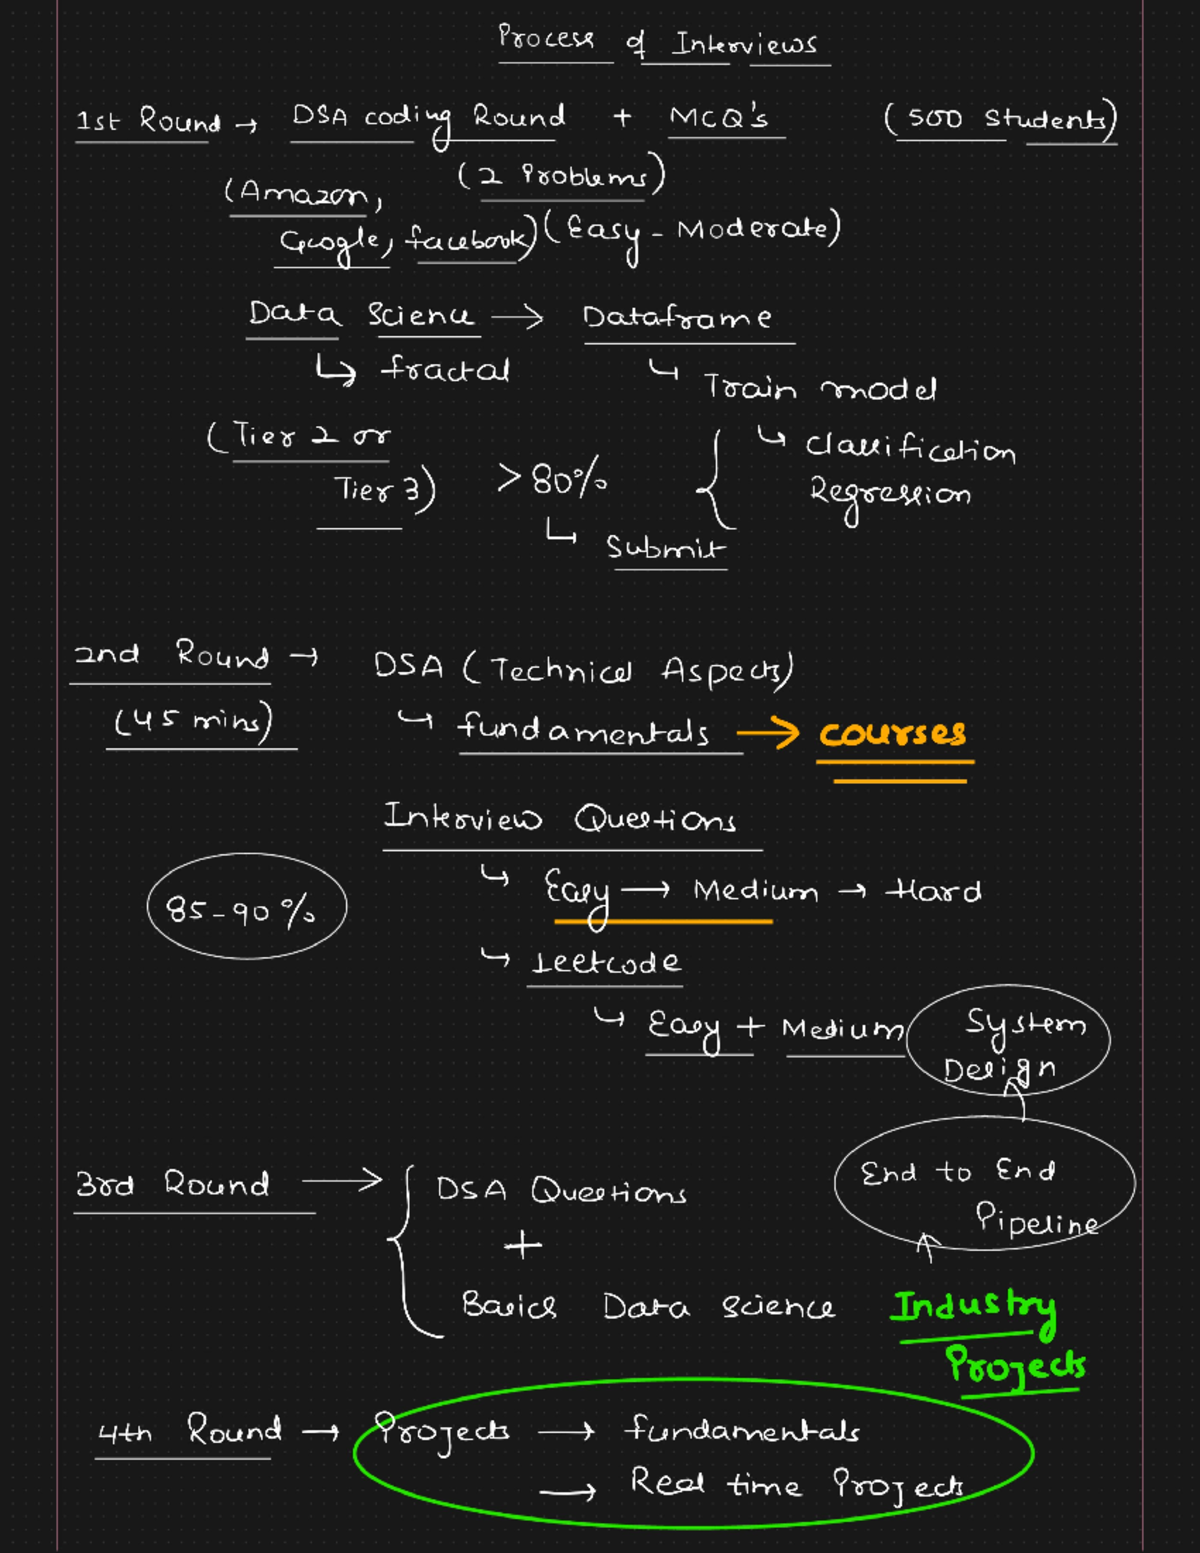 Process of Interviews
1st Round → DSA coding Round + MCQ's (500 Students)
(2 Problems)
(Amazon,
Google, facebook) (Easy - Moderate)
Data Science → Dataframe
↳ fractal
↳ Train model
(Tier 2 or
↳ Classification
Tier 3) >80%
Regression
↳ Submit
2nd Round → DSA (Technical Aspects)
(45 mins)
↳ fundamentals → courses
Interview Questions
↳ Easy → Medium → Hard
85-90%
↳ Leetcode
↳ Easy + Medium
System
Design
End to End
Pipeline
3rd Round → DSA Questions
+
Basics Data Science
Industry
Projects
4th Round → Projects → fundamentals
→ Real time Projects